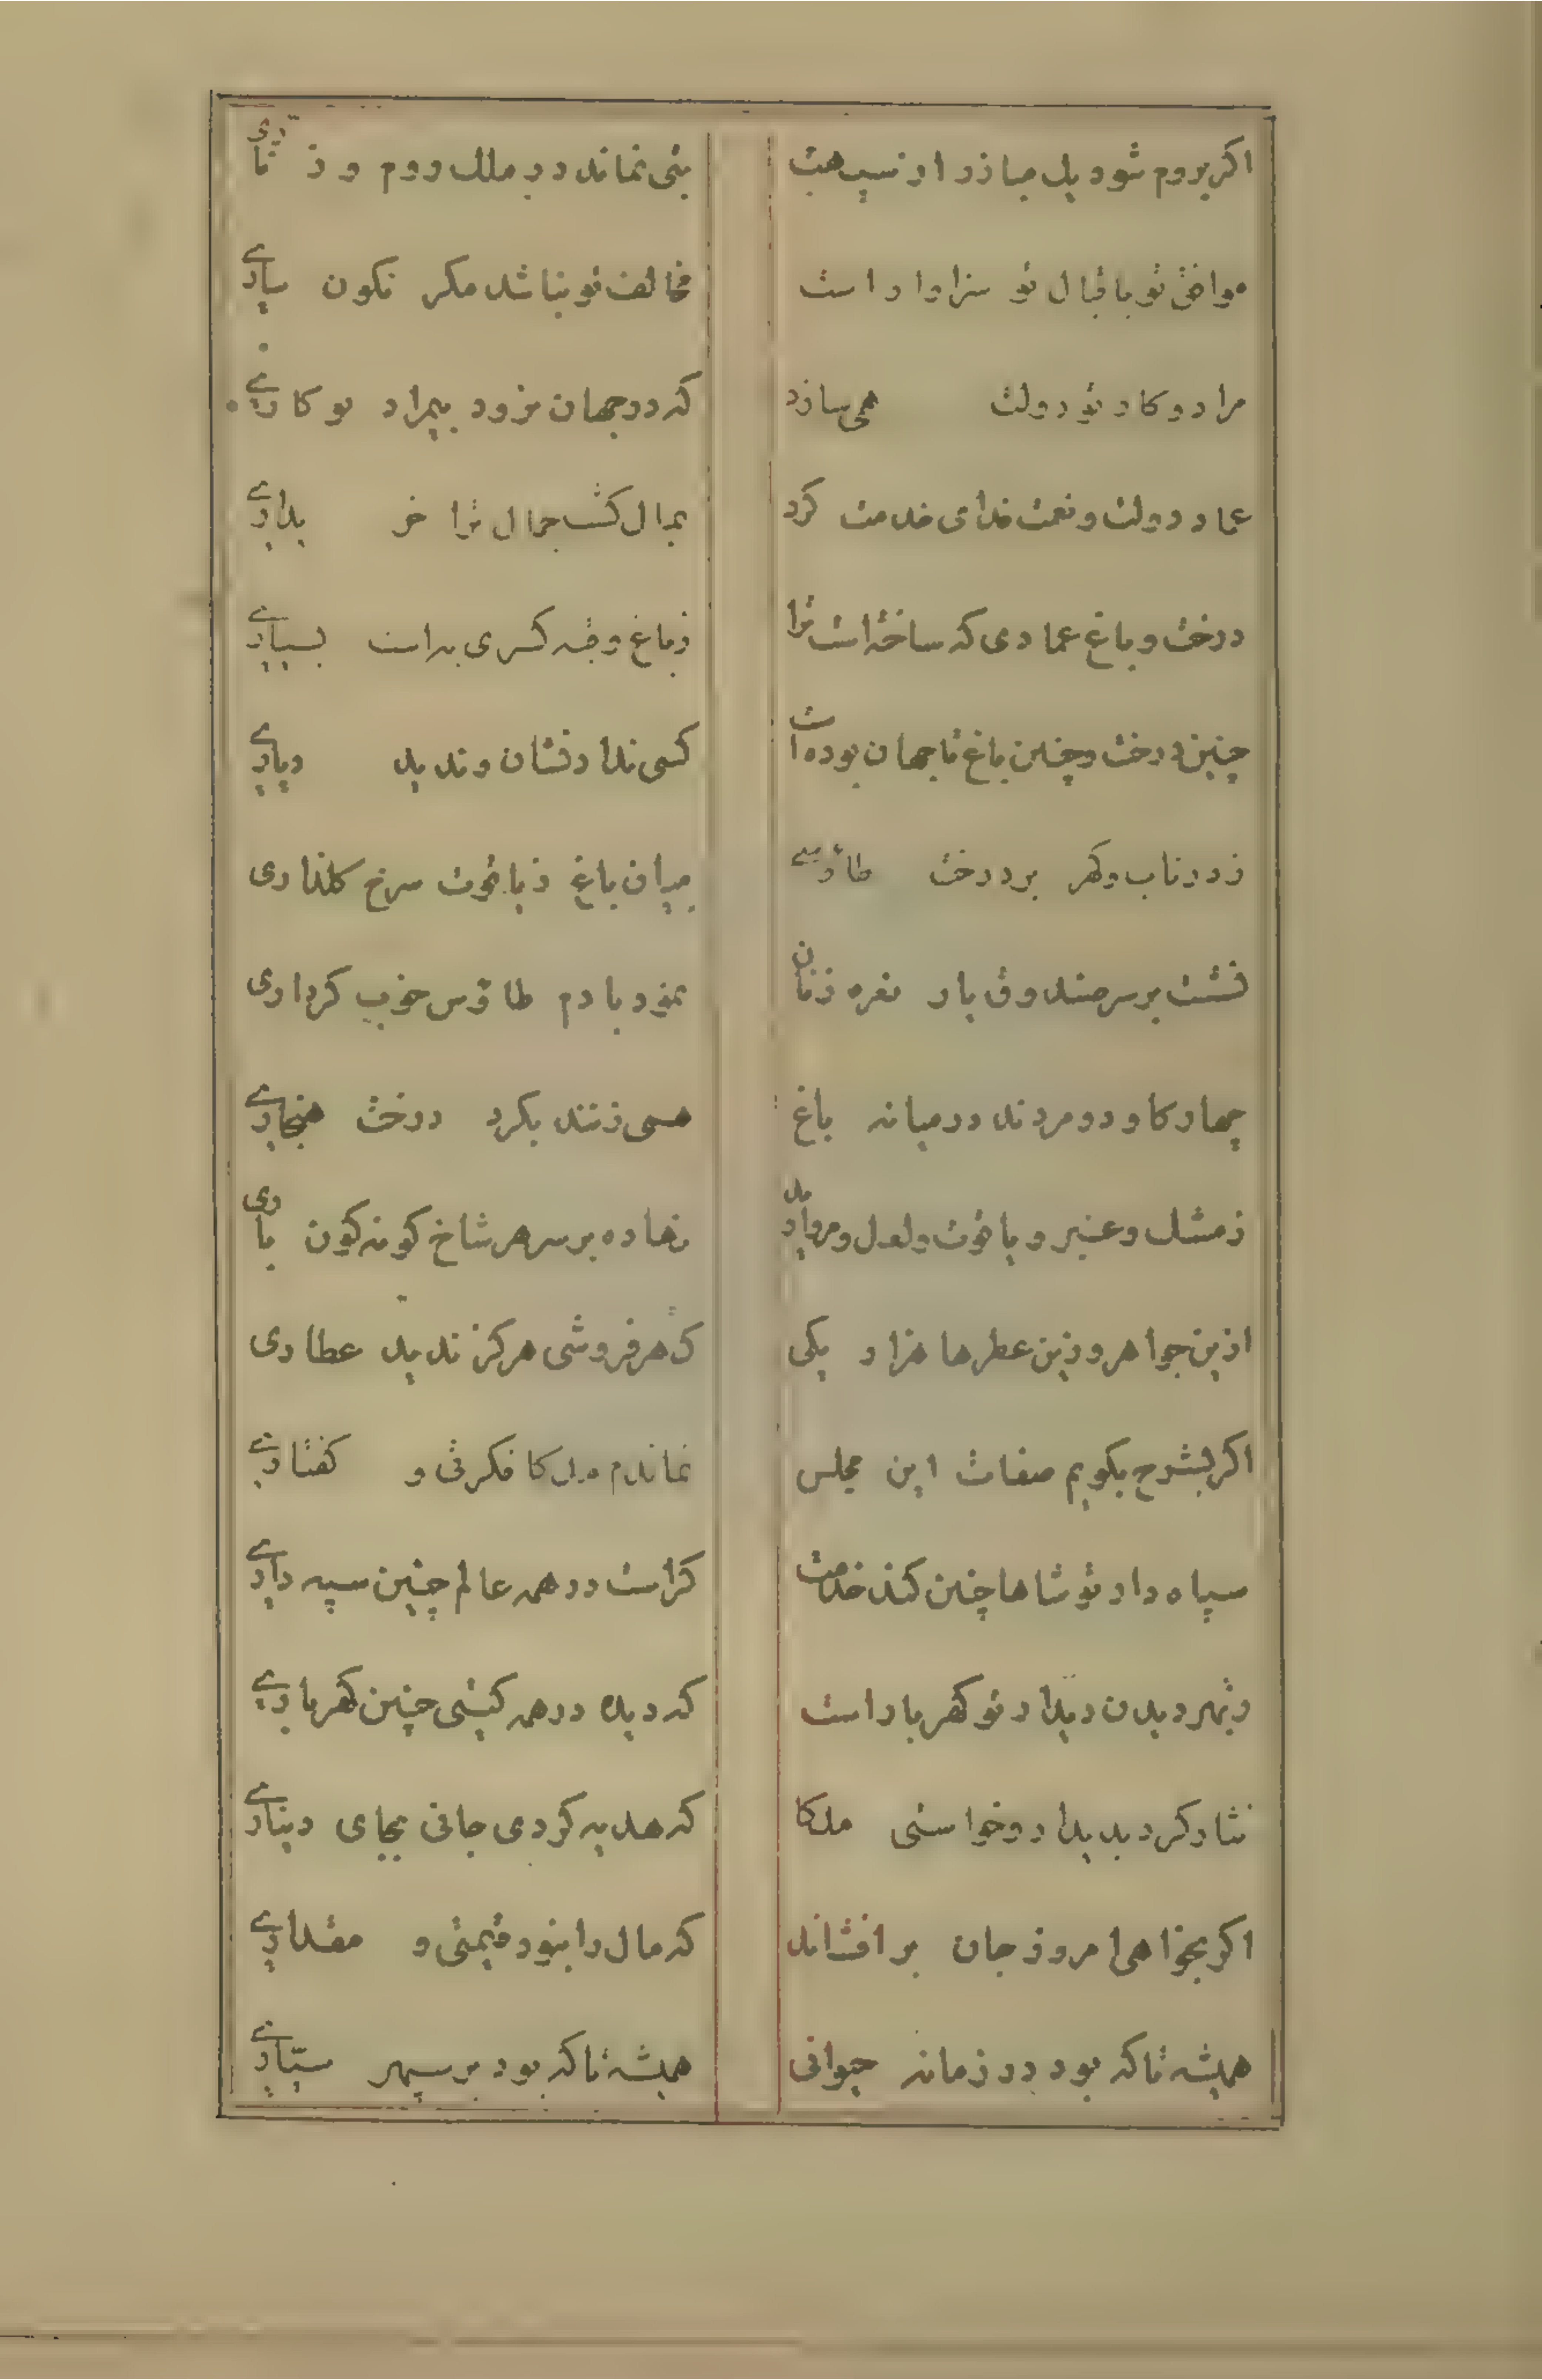 اکر بروم شود یل مبارز از سپهت بتی نماند در ملک روم و ز ناری
موافق تو باقبال تو سزاوار است مخالف تو نباشد مکر نکون ساری
مراد و کار تو دولت همی سازد که در جهان نرود بیمراد تو کاری
عماد دولت و نعمت خدای خدمت کرد بمال کشت جمال ترا خریداری
درخت و باغ عمادی که ساخته است ترا ز باغ و قبه کسری به است بسیاری
چنین درخت و چنین باغ تا جهان بوده است کسی نداد نشان و ندید دیاری
ز در ناب و کهر بر درخت طاوسی میان باغ ز یاقوت سرخ کلناری
نشست بر سر صندوق یار نعره زنان نمود با دم طاوس خوب کرداری
چهار کاو دو مردند در میانه باغ همی زنند بکرد درخت هنجاری
ز مشک و عنبر و یاقوت و لعل و مروارید نهاده بر سر هر شاخ کونه کون باری
ازین جواهر و زین عطرها هزار یکی کهر فروشی هرکز ندید عطاری
اکر بشرح بکویم صفات این مجلس نماندم ملکا فکرتی و کفتاری
سپاه دار تو شاها چنین کند خدمت کراست در همه عالم چنین سپه داری
ز بهر دیدن دیدار تو کهر بار است که دیده در همه کیتی چنین کهر باری
نثار کرد بدیدار و خواستی ملکا که هدیه کردی جانی بجای دیناری
اکر بخواهی امروز جان بر افشاند که مال را نبود قیمتی و مقداری
همیشه تا که بود در زمانه حیوانی همیشه تا که بود بر سپهر سیّاری